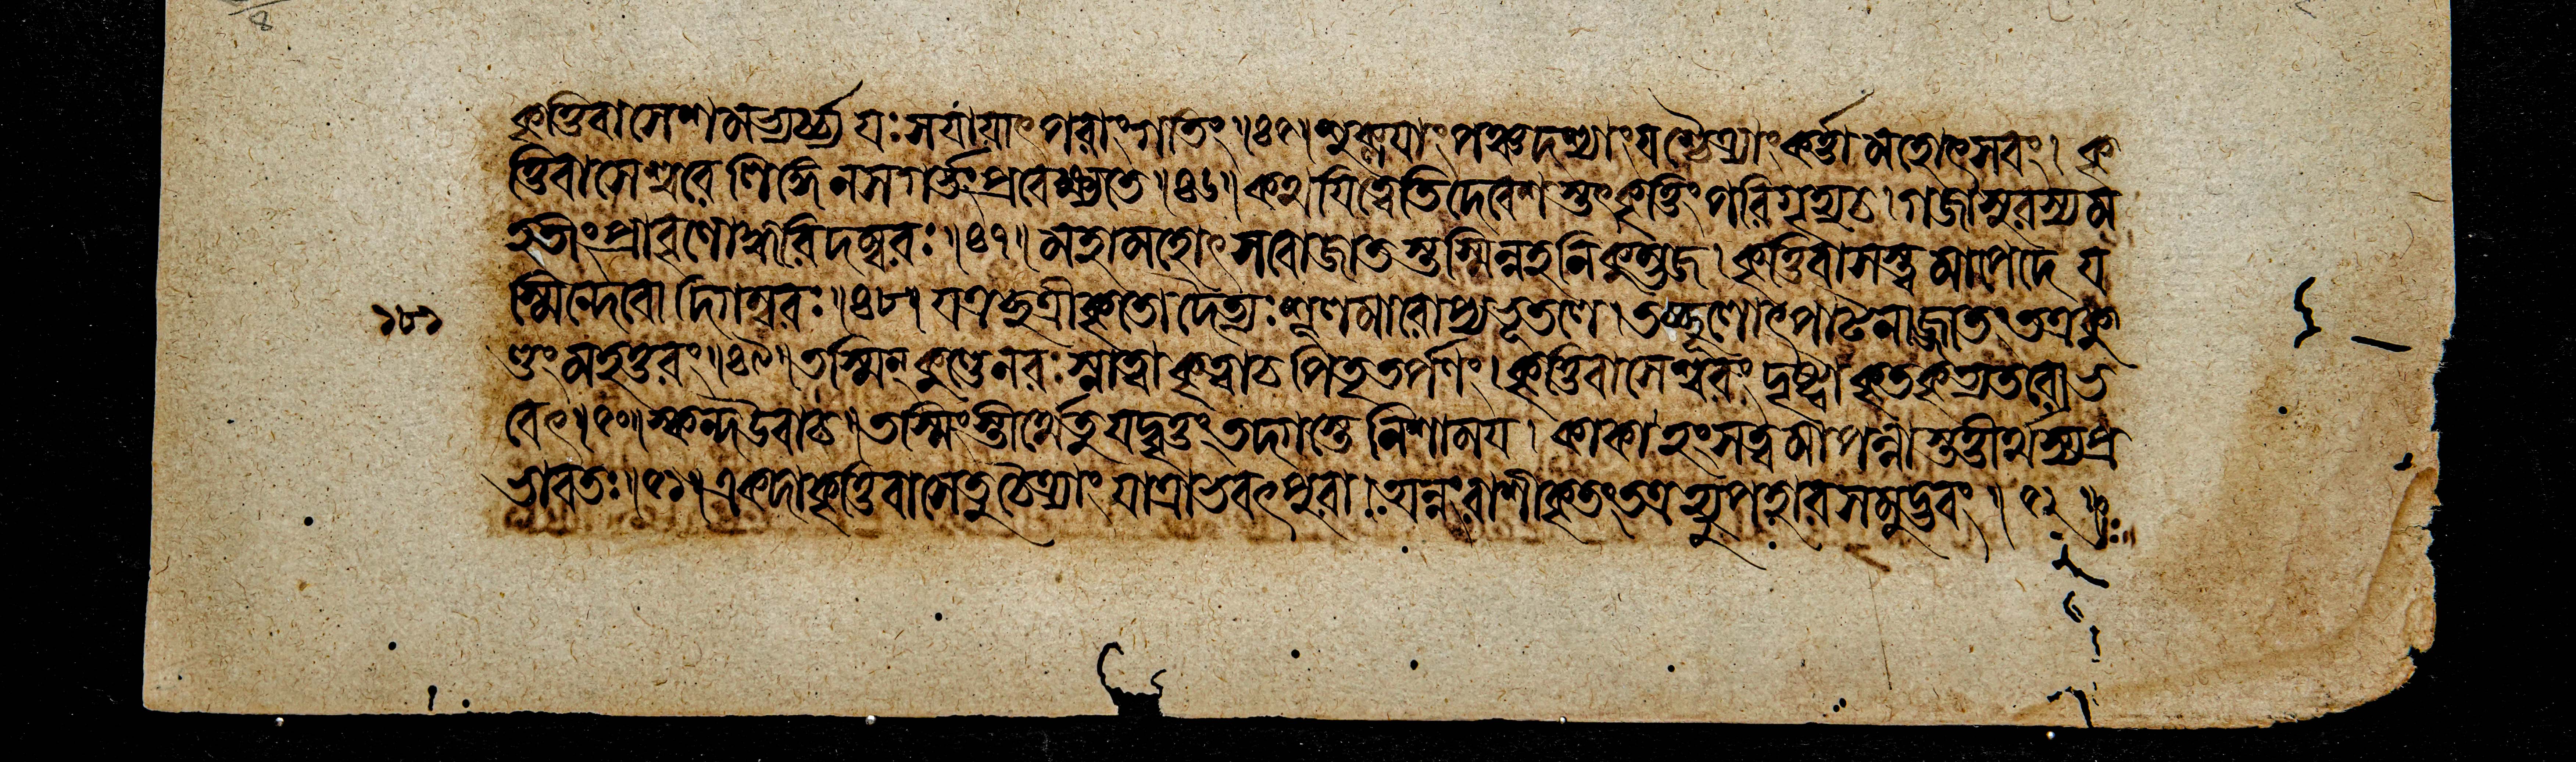 কৃত্তিবাসেশমভ্যর্চ্চ্য যঃ স যাযাৎপরাং গতিং॥৪৫॥শুক্লাযাং পঞ্চদশ্যাং যশ্চৈত্র্যাং কর্ত্তা মহোৎসবং। কৃ
ত্তিবাসেশ্বরে লিঙ্গে ন স গর্ভং প্রবেক্ষ্যতে॥৪৬॥কথযিত্বেতি দেবেশস্তৎকৃত্তিং পরিগৃহ্য চ।গজাসুরস্য ম
হতীং প্রাবৃণোদ্ধরিদম্বরঃ॥৪৭॥ মহামহোৎসবো জাতস্তস্মিন্নহনি কুম্ভজ।কৃত্তিবাসস্ত্বমাপেদে য
স্মিন্দেবো দিগম্বরঃ॥৪৮॥যত্র ছত্রীকৃতো দৈত্যঃ শূলমারোপ্য ভূতলে।তচ্ছূলোৎপাটনাজ্জাতং তত্র কু
ণ্ডং মহত্তরং॥৪৯॥তস্মিন্ কুণ্ডে নরঃ স্নাত্বা কৃত্বা চ পিতৃতর্পণং।কৃত্তিবাসেশ্বরং দৃষ্ট্বা কৃতকৃত্যো নরো ভ
বেৎ॥৫০॥স্কন্দ উবাচ॥তস্মিংস্তীর্থে তু যদ্বৃত্তং তদগস্তে নিশাময। কাকা হংসত্বমাপন্নাস্তত্তীর্থস্য প্র
ভাবতঃ॥৫১॥একদা কৃত্তিবাসে তু চৈত্র্যাং যাত্রাভবৎপুরা।অন্নং রাশীকৃতং তত্র হ্যুপহারসমুদ্ভবং॥৫২॥
১৮১